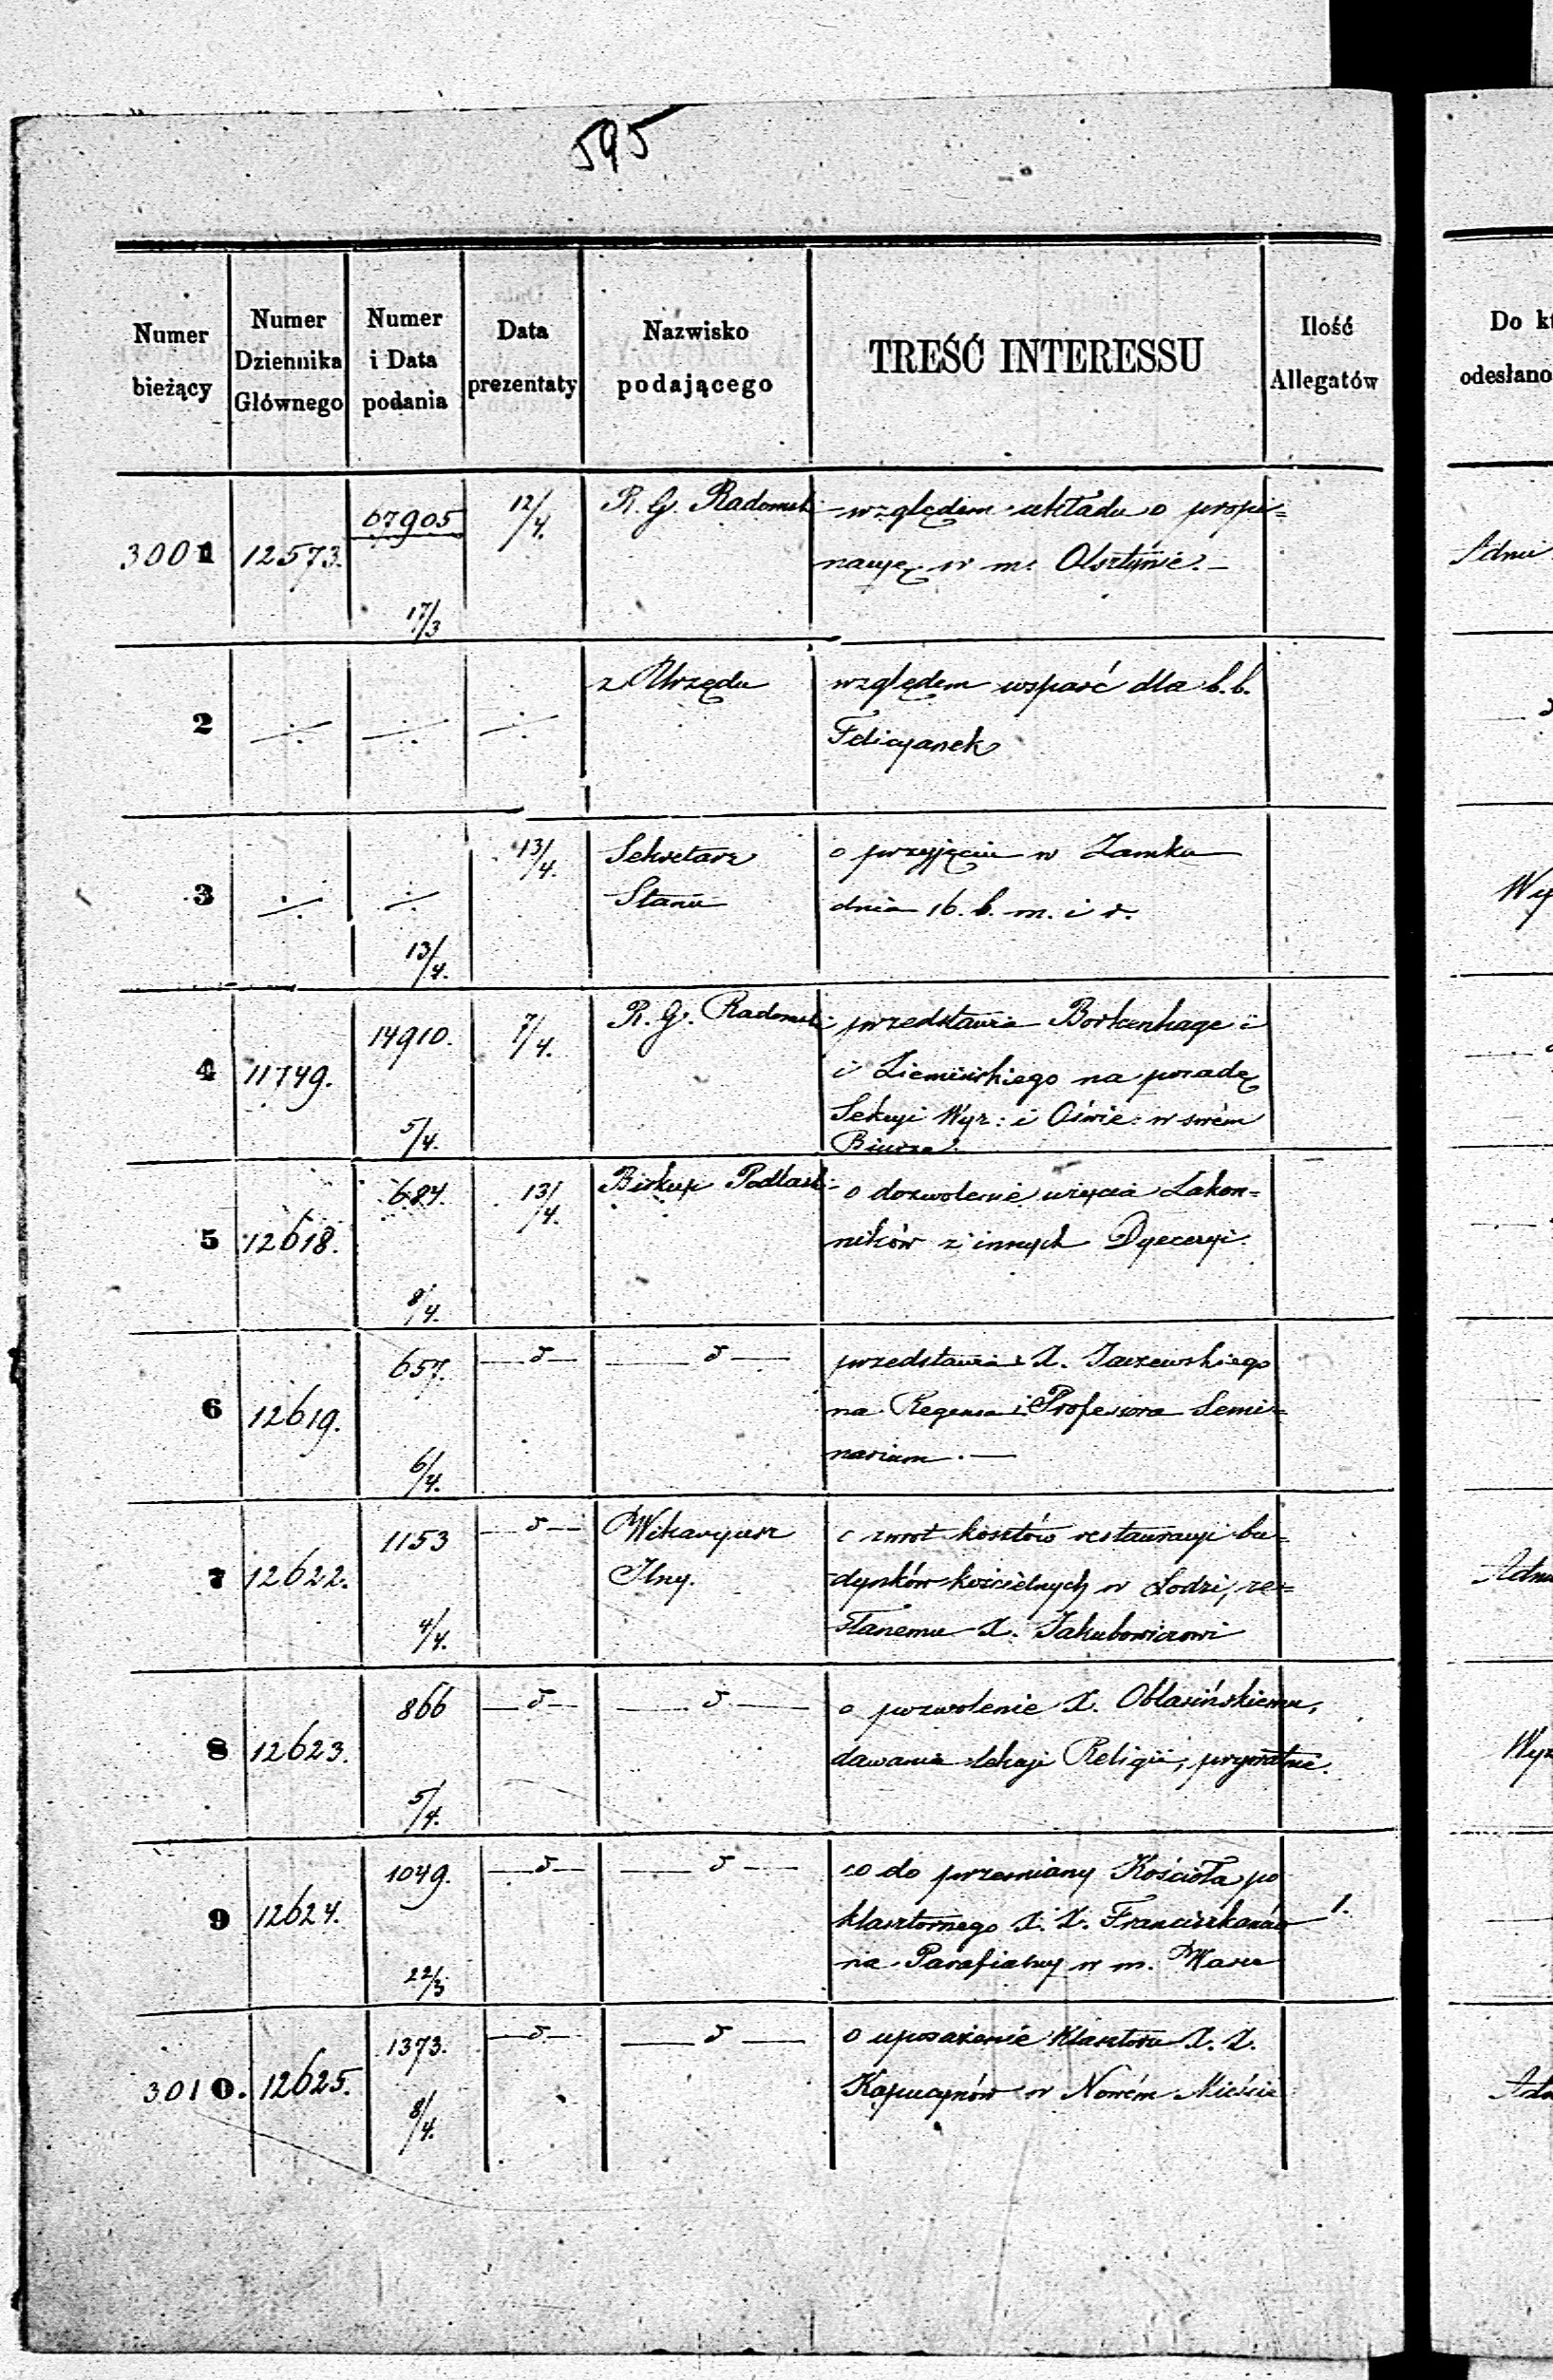 595
Numer bieżący
Numer Dziennika Głównego
Numer i Data podania
Data prezentaty
Nazwisko podającego
TREŚĆ INTERESSU
Ilość Allegatów
Do kt
odesłano
3001 12573. 67905 17/3 12/4. R. G. Radomsk względem układu o propi=
nacyę w m. Olsztynie.
Adm
2 z Urzędu względem wsparć dla b. b.
Felicyanek
3 13/4. 13/4. Sekretarz Stanu o przyjęciu w Zamku
dnia 16. b. m. i r.
Wy
4 11749. 14910. 5/4. 7/4. R. G. Radomsk przedstawia Borkenhage i
i Ziemińskiego na posadę
Sekcyi Wyz: i Oświe: w swém
Biurze.
5 12618. 684. 8/4. 13/4. Biskup Podlask o dozwolenie wzięcia Zakon=
ników z innych Dyecezyi.
6 12619. 657. 6/4. d d przedstawia X. Jaczewskiego
na Regensa i Profesora Semi=
narium.
7 12622. 1153 4/4. d Wikaryusz Jlny. o zwrot kosztów restauracyi bu=
dynków kościelnych w Łodzi, ze=
słanemu X. Jakubowiczowi
Adm
8 12623. 866 5/4. d d o pozwolenie X. Oblasińskiemu,
dawania lekcyi Religii, prywatnie.
Wyz
9 12624. 1049. 22/3 d d co do przemiany Kościoła po
klasztornego X. X. Franciszkanów 1.
na Parafialny w m. Warce
3010. 12625. 1373. 8/4. d d o uposażenie Klasztoru X. X.
Kapucynów w Nowém Mieście
Adm